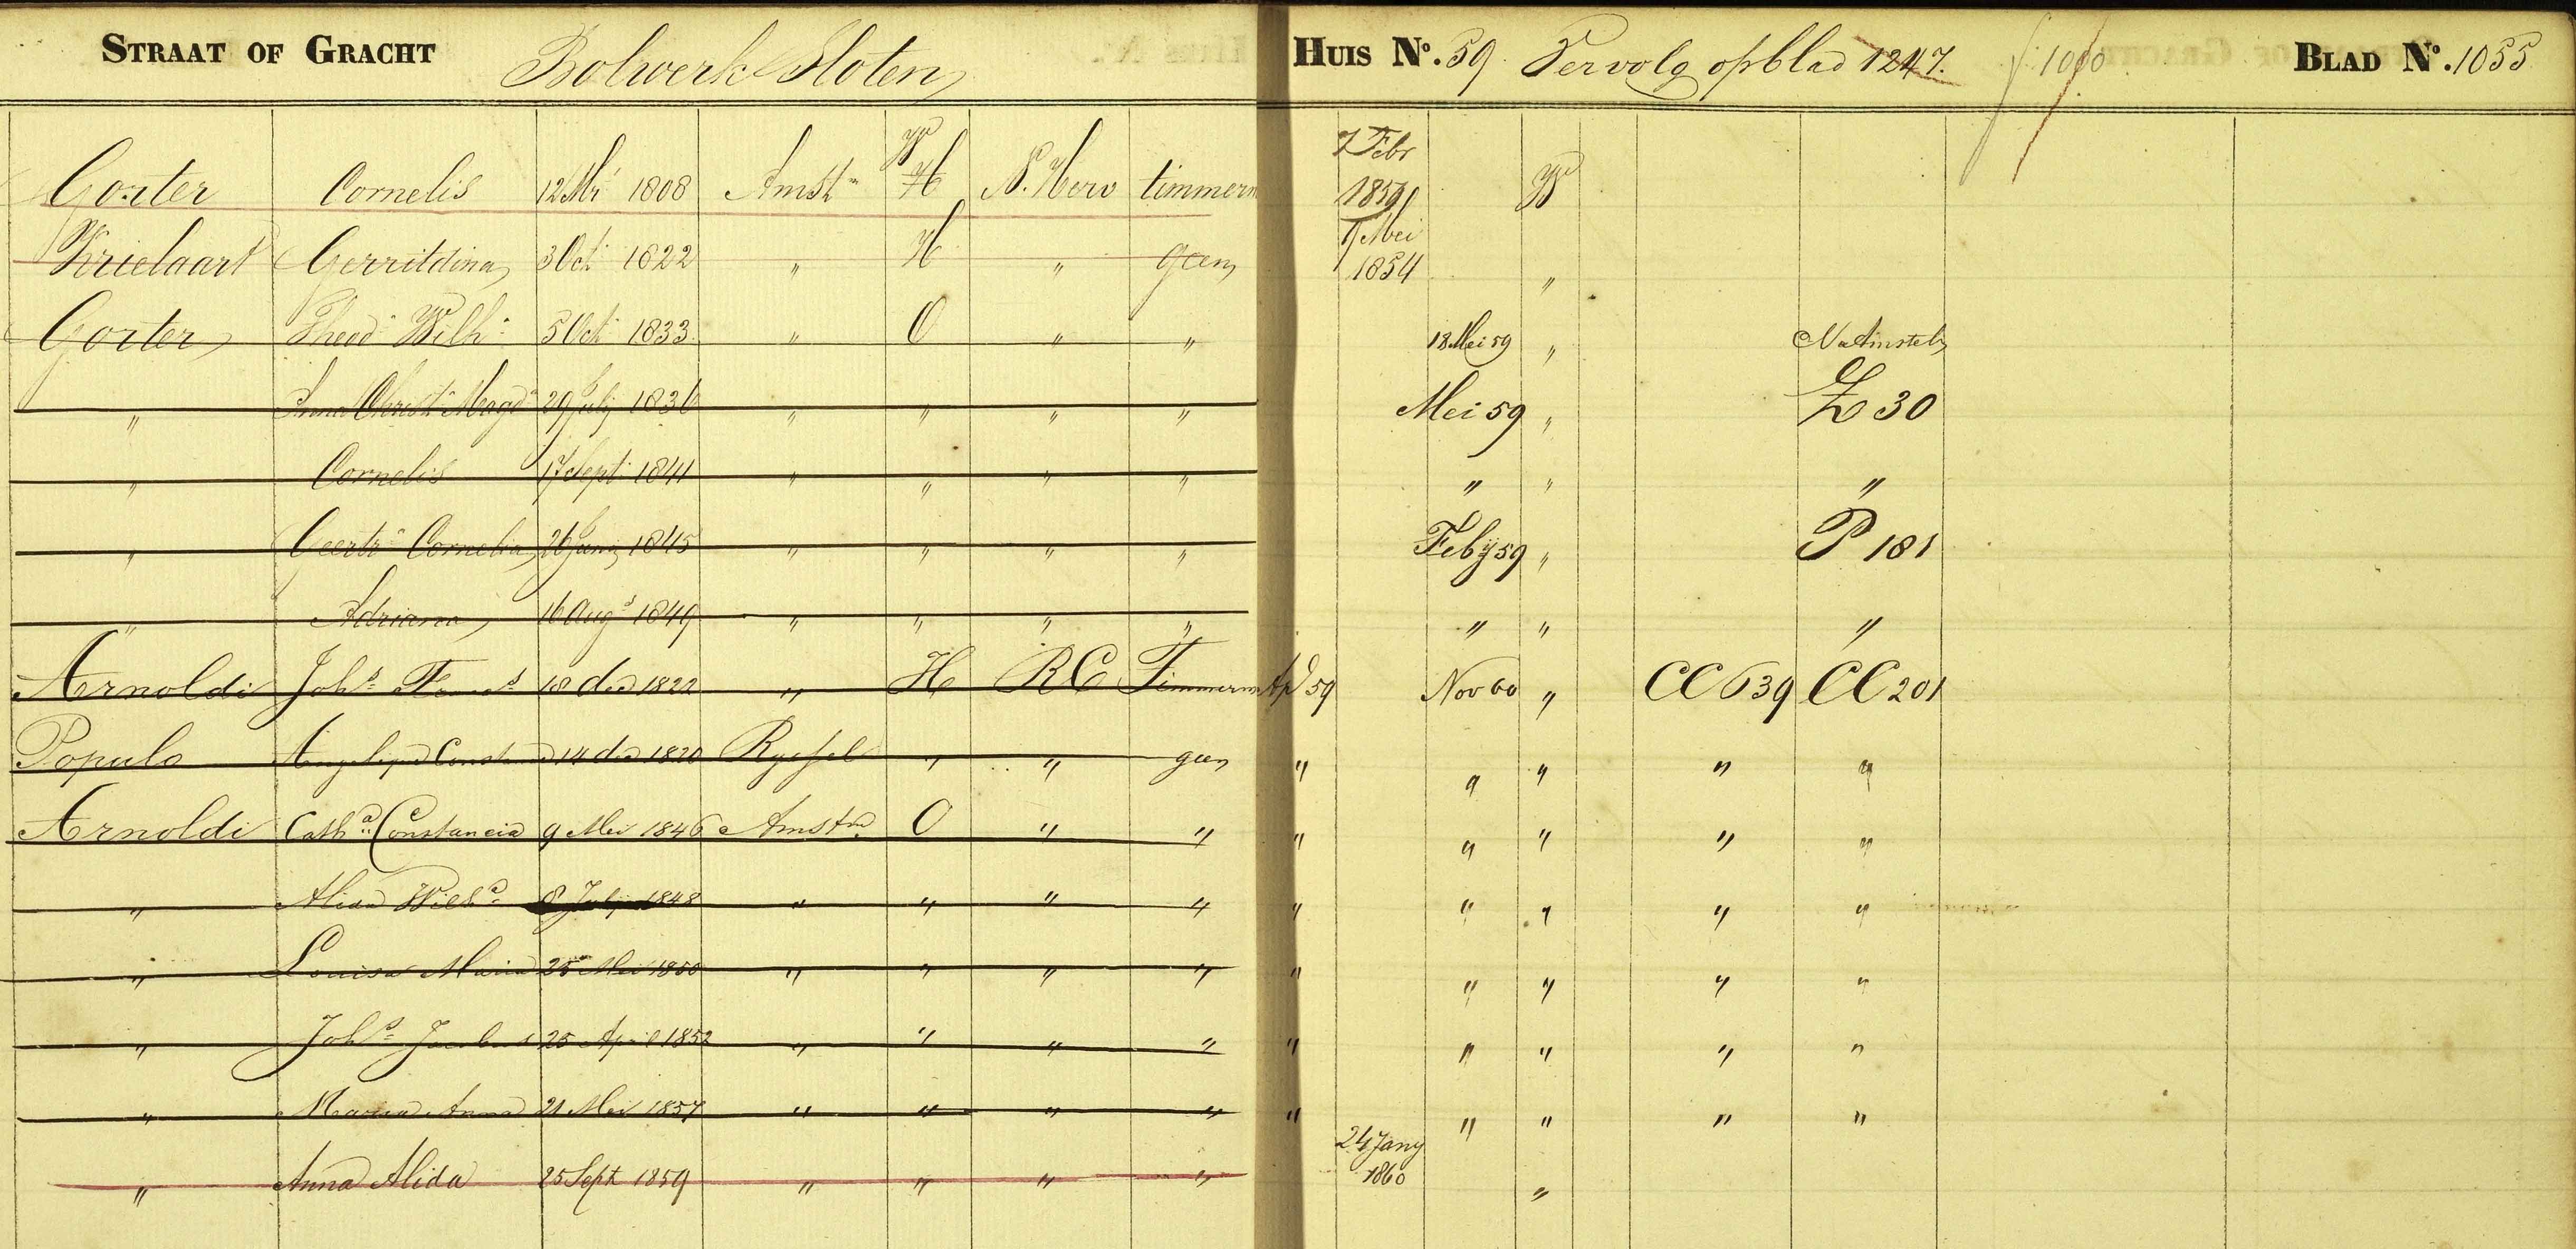 STRAAT OF GRACHT Bolwerk Sloten HUIS No. 59 Vervolg op blad 1247. f 1000 BLAD No. 1055
Gorter Cornelis 12 Mrt 1808 Amstm W H N. Herv timmerm 7 Febr 1859 W
Krielaart Gerritdina 3 Oct 1822 " H " geen 9 Mei 1854 "
Gorter Theod Wilh 5 Oct 1833 " O " " 18 Mei 59 " Na Amstel
" Anna Christa Magda 29 Julij 1836 " " " " Mei 59 " Z 30
" Cornelis 17 Sept 1841 " " " " " " "
" Geertr Cornelia 26 Junij 1845 " " " " Feby 59 " P 181
" Adriana 16 Augs 1849 " " " " " " "
Arnoldi Johs 18 dec 1822 " H RC Timmerm Apl 59 Nov 60 " CC 639 CC 201
Populo 14 dec 1820 Ryssel " " geen " " " " "
Arnoldi Catha Constancia 9 Mei 1846 Amstm O " " " " " " "
" Alida Wilha 8 Julij 1848 " " " " " " " " "
" Louisa Maria 25 Mei 1850 " " " " " " " " "
" Johs Jacobus 25 April 1852 " " " " " " " " "
" Maria Anna 21 Mei 1857 " " " " " " " " "
" Anna Alida 25 Sept 1859 " " " " 24 Jany 1860 "